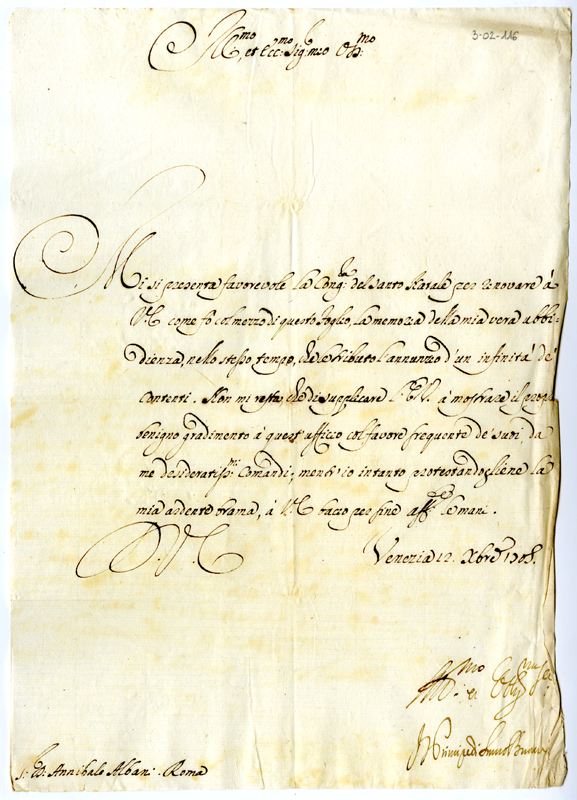 3-02-116
Ill.mo et Ecc.mo Sig.r mio Oss.mo
Mi si presenta favorevole la Cong.ra del Santo Natale per renovare à
V.E. come fò col mezzo di questo foglio, la memoria della mia vera ubbi-
dienza, nello stesso tempo, che le tributo l'annunzio d'un infinità de'
contenti. Non mi resta, che di supplicare l'E.V. à mostrare il
benigno gradimento à quest'ufficio col favore frequente de' suoi, da
me desideratiss.mi Comandi; mentr'io intanto protestandogliene la
mia ardente brama, à V.E. baccio per fine aff.te le mani.
D. V. E.
Venezia 12. Xbre 1708.
S.r D. Annibale Albani. Roma